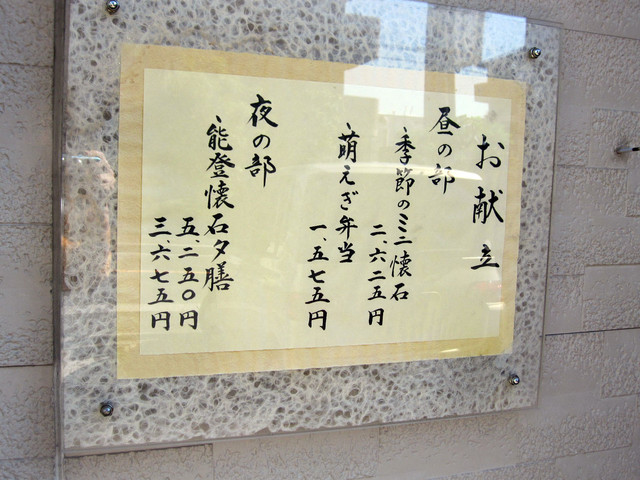 お献立
昼の部
、季節のミニ懐石
二、六二五円
、萌えぎ弁当
一、五七五円
夜の部
、能登懐石夕膳
五、二五〇円
三、六七五円